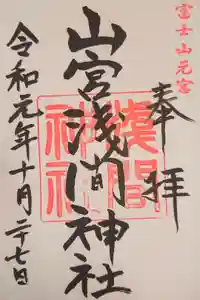 富士山元宮
奉拝
山宮浅间神社
淺間神社
令和元年十月二十七日